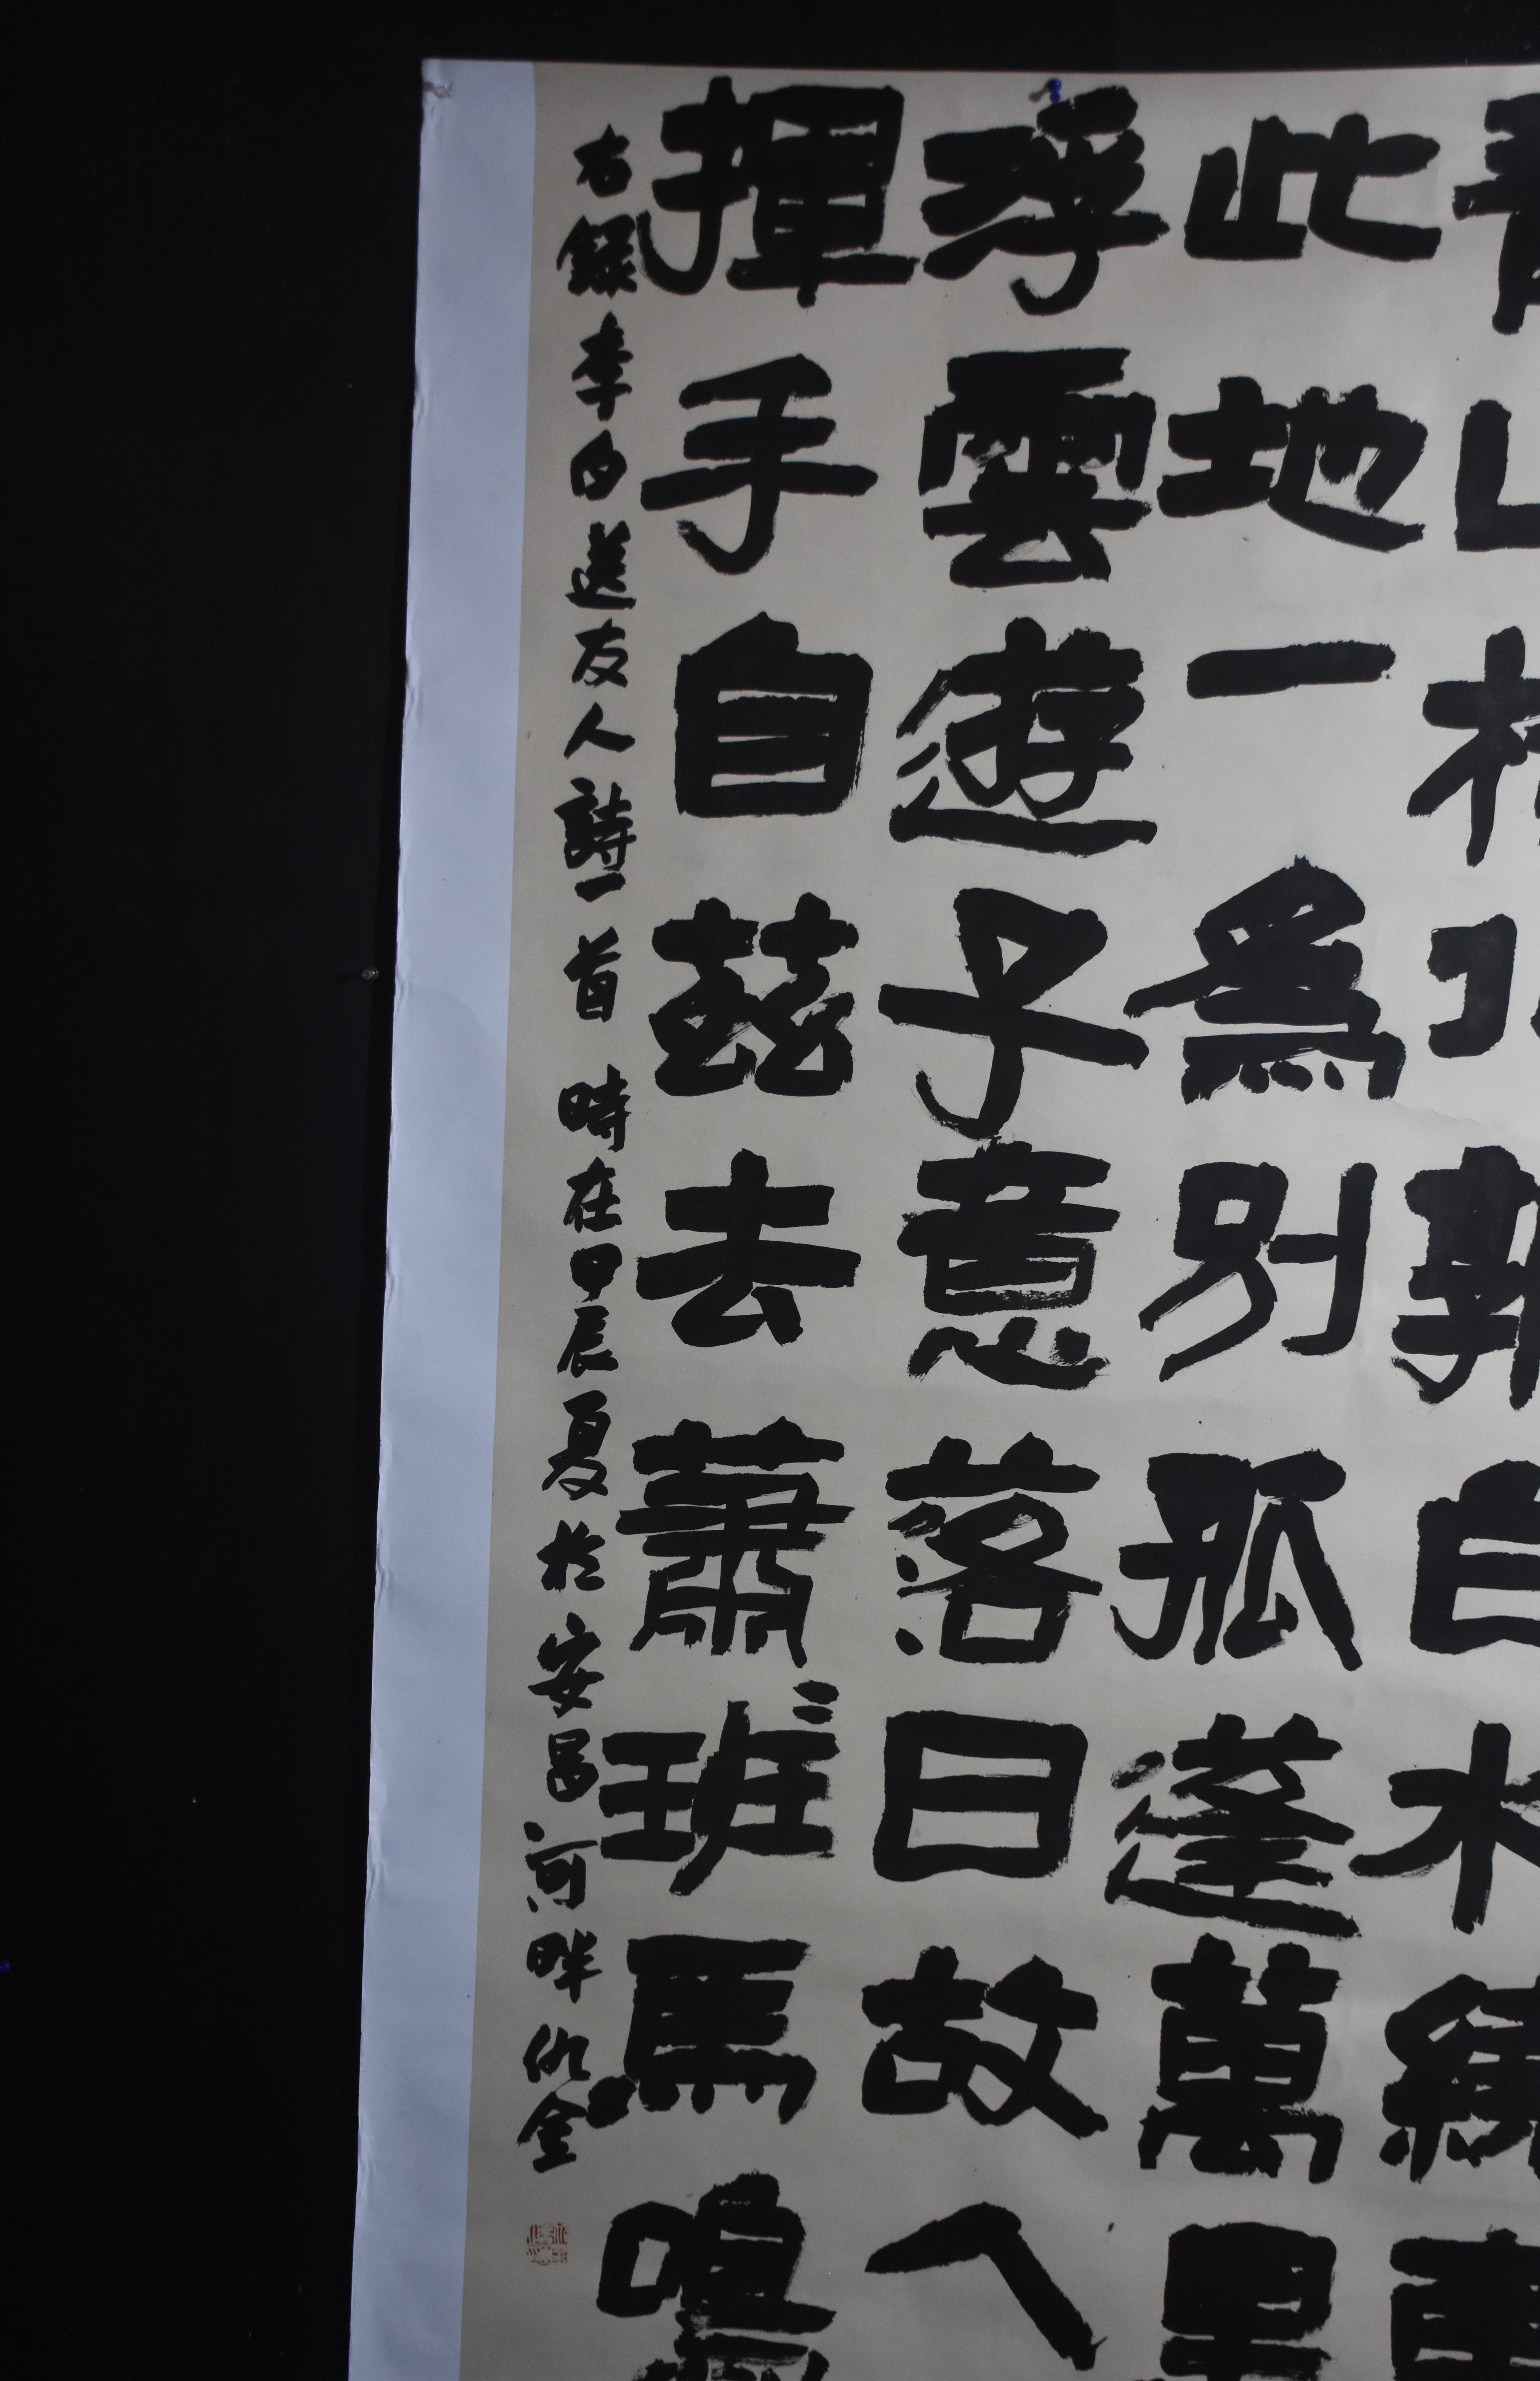 青山橫北郭白水繞東
此地一爲別孤蓬萬里
浮雲遊子意落日故人
揮手自茲去蕭〻班馬鳴
右錄李白送友人詩一首 時在甲辰夏於安昌河畔 金